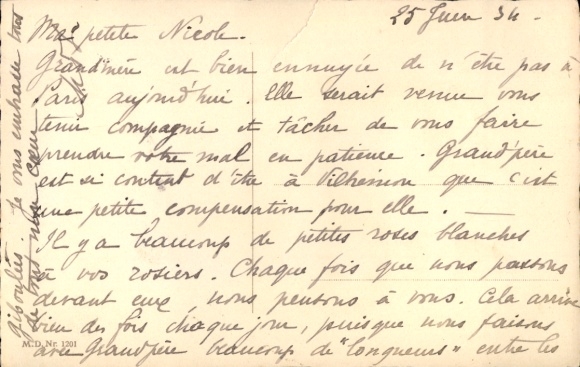 25 Juin 34.
Ma petite Nicole.
Grand'mère est bien ennuyée de n'être pas à
Paris aujourd'hui. Elle serait venue vous
tenir compagnie et tâcher de vous faire
prendre votre mal en patience. Grand'père
est si content d'être à que c'est
une petite compensation pour elle. —
Il y a beaucoup de petites roses blanches
à vos rosiers. Chaque fois que nous passons
devant eux nous pensons à vous. Cela arrive
bien des fois chaque jour, puisque nous faisons
avec Grand'père beaucoup de "longueurs" entre les
giboulées. Je vous embrasse tout
de tout mon cœur
M.D. Nr. 1201